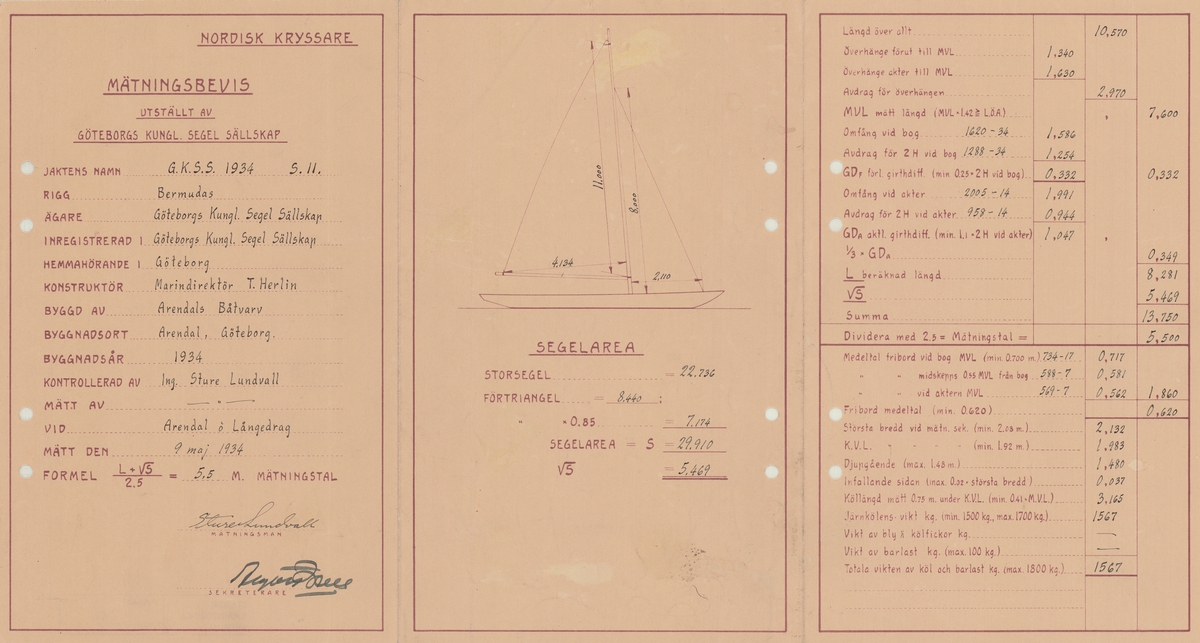 NORDISK KRYSSARE
MÄTNINGSBEVIS
UTSTÄLLT AV
GÖTEBORGS KUNGL. SEGEL SÄLLSKAP
JAKTENS NAMN G.K.S.S. 1934 S.11.
RIGG Bermudas
ÄGARE Göteborgs Kungl. Segel Sällskap
INREGISTRERAD I Göteborgs Kungl. Segel Sällskap
HEMMAHÖRANDE I Göteborg
KONSTRUKTÖR Marindirektör T. Herlin
BYGGD AV Arendals Båtvarv
BYGGNADSORT Arendal, Göteborg.
BYGGNADSÅR 1934
KONTROLLERAD AV Ing. Sture Lundvall
MÄTT AV — " —
VID Arendal o Långedrag
MÄTT DEN 9 maj 1934
FORMEL L + √S / 2.5 = 5,5 M. MÄTNINGSTAL
Sture Lundvall
MÄTNINGSMAN
SEKRETERARE
11,000
8,000
4,134
2,110
SEGELAREA
STORSEGEL = 22,736
FÖRTRIANGEL = 8,440 ;
" × 0.85 = 7,174
SEGELAREA = S = 29,910
√S = 5,469
Längd över allt 10,570
Överhänge förut till MVL 1,340
Överhänge akter till MVL 1,630
Avdrag för överhängen 2,970
MVL mätt längd (MVL × 1.42 ≧ L.Ö.A.) 7,600
Omfång vid bog 1620-34 1,586
Avdrag för 2H vid bog 1288-34 1,254
GDF förl. girthdiff. (min. 0.25 × 2H vid bog) 0,332 0,332
Omfång vid akter 2005-14 1,991
Avdrag för 2H vid akter 958-14 0,944
GDA aktl. girthdiff. (min. 1.1 × 2H vid akter) 1,047
1/3 × GDA 0,349
L beräknad längd 8,281
√S 5,469
Summa 13,750
Dividera med 2.5 = Mätningstal = 5,500
Medeltal fribord vid bog MVL (min. 0.700 m.) 734-17 0,717
" " midskepps 0.55 MVL från bog 588-7 0,581
" " vid aktern MVL 569-7 0,562 1,860
Fribord medeltal (min. 0.620) 0,620
Största bredd vid mätn. sek. (min. 2.03 m.) 2,132
K.V.L. " " " (min. 1.92 m.) 1,983
Djupgående (max. 1.48 m.) 1,480
Infallande sidan (max. 0.02 × största bredd) 0,037
Köllängd mätt 0.75 m. under K.V.L. (min. 0.41 × M.V.L.) 3,165
Järnkölens vikt kg. (min. 1500 kg., max. 1700 kg.) 1567
Vikt av bly i kölfickor kg. —
Vikt av barlast kg. (max. 100 kg.) —
Totala vikten av köl och barlast kg. (max. 1800 kg.) 1567